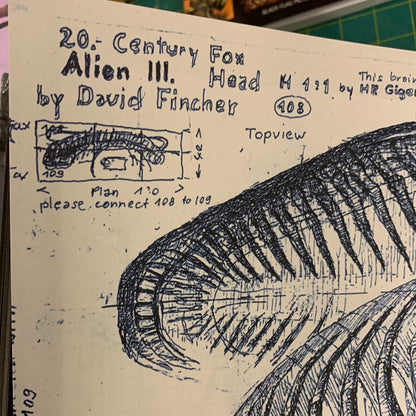 20.- Century Fox
Alien III. Head M 1:1 by HR Giger
This brain
by David Fincher
108
Topview
fax
108
109
Plan 1:0
please connect 108 to 109
109